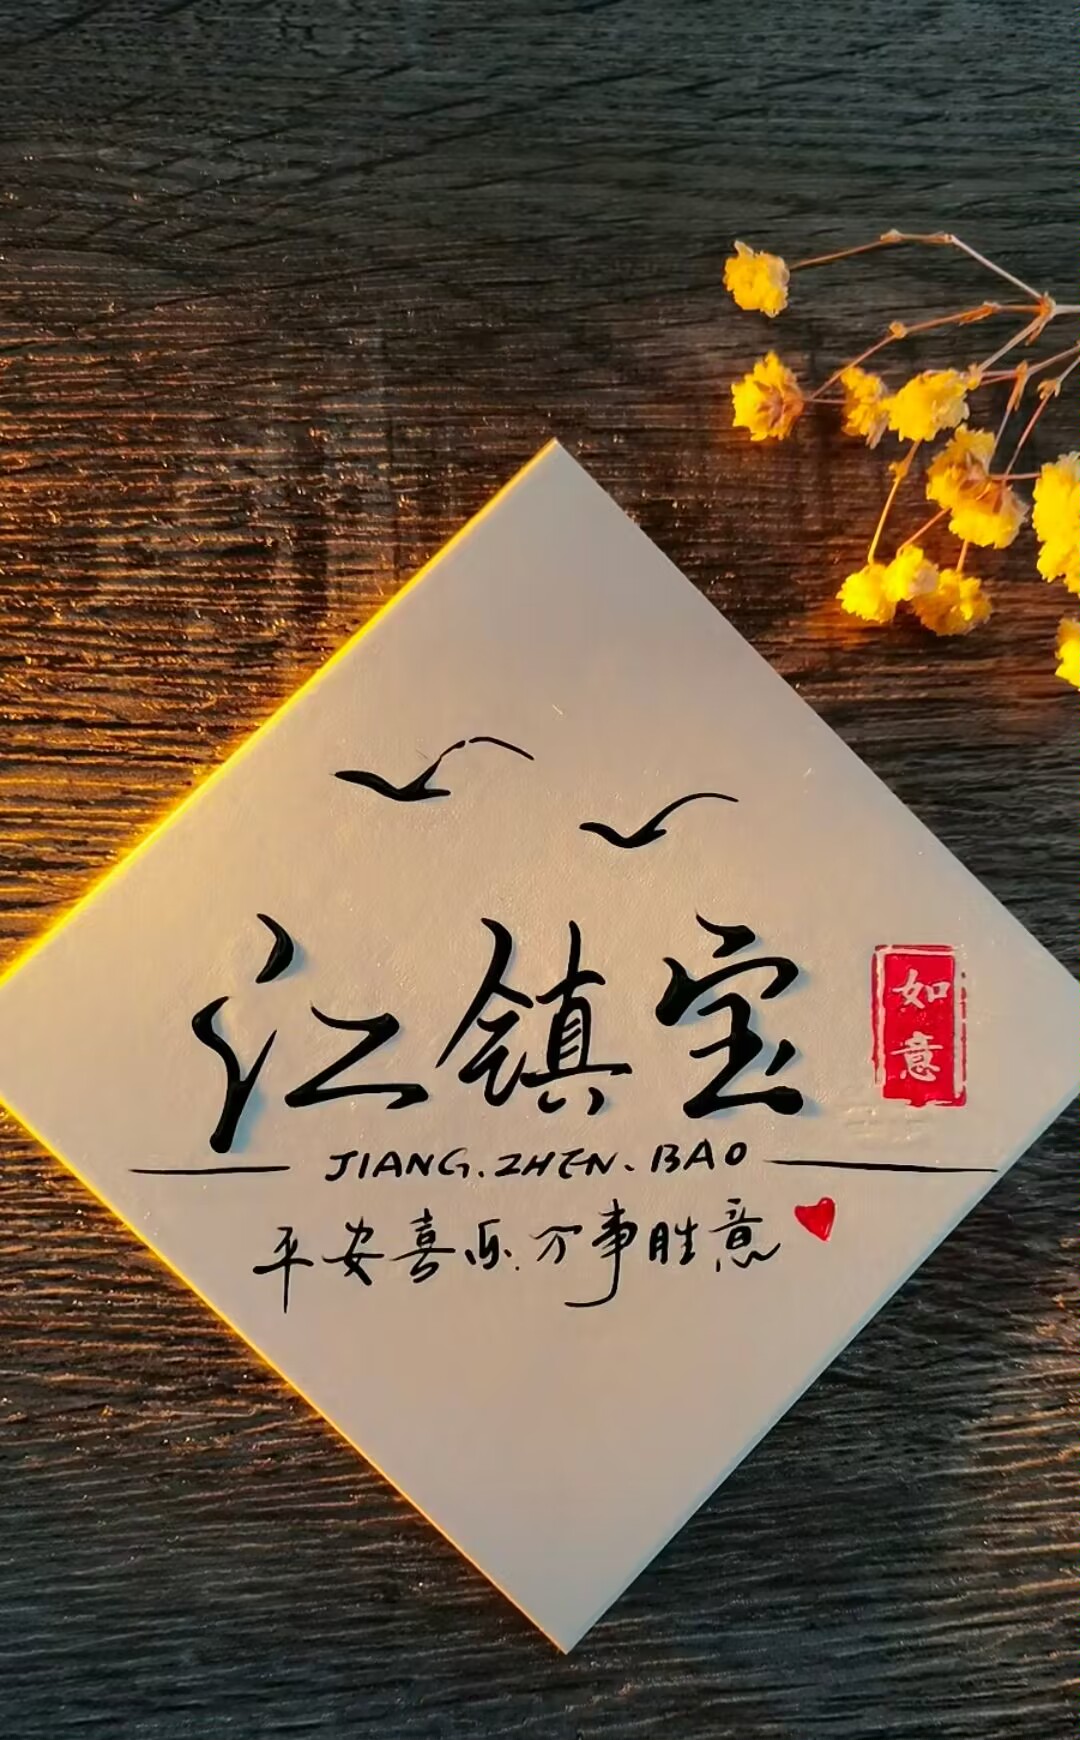 江镇宝
如意
JIANG.ZHEN.BAO
平安喜乐.万事胜意